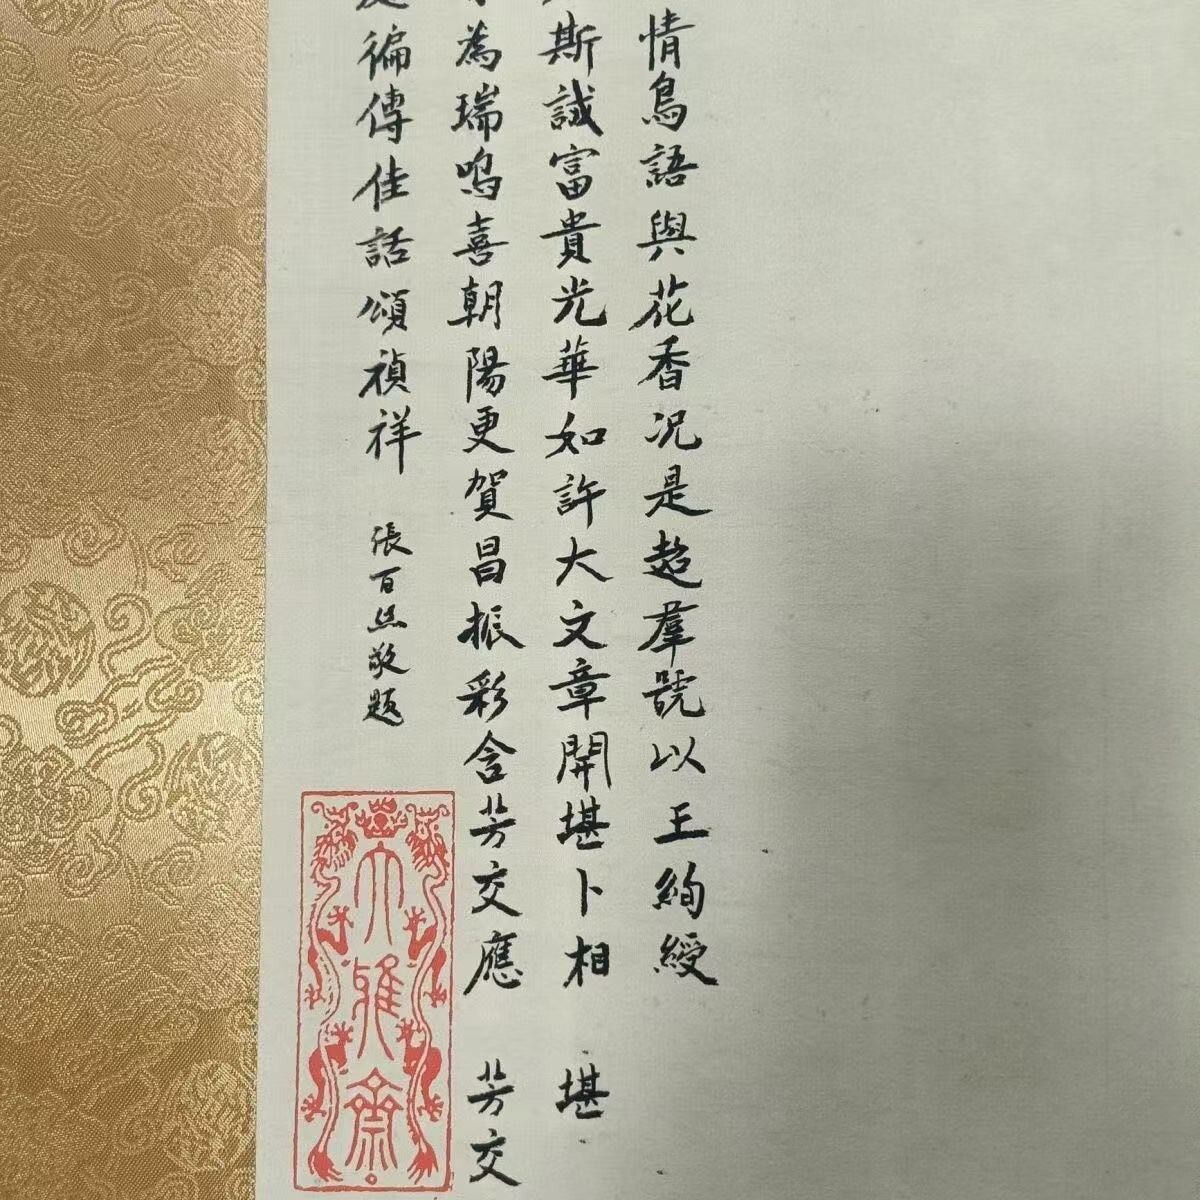 情鳥語與花香况是超羣號以王絢綬
斯誠富貴光華如許大文章開堪卜相堪
為瑞鳴喜朝陽更賀昌振彩含芳交應芳交
徧傳佳話頌禎祥
張百熙敬題
大雅齋